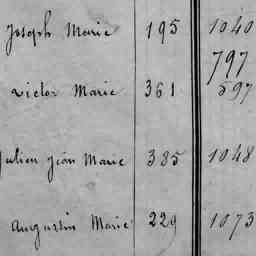 Joseph Marie 195 1040
797
Victor Marie 361 597
Julien Jéan Marie 385 1048
Augustin Marie 229 1073